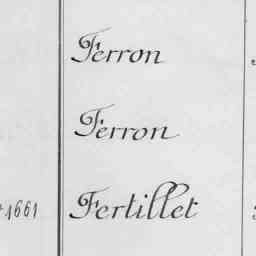 Ferron
Ferron
1661 Fertillet